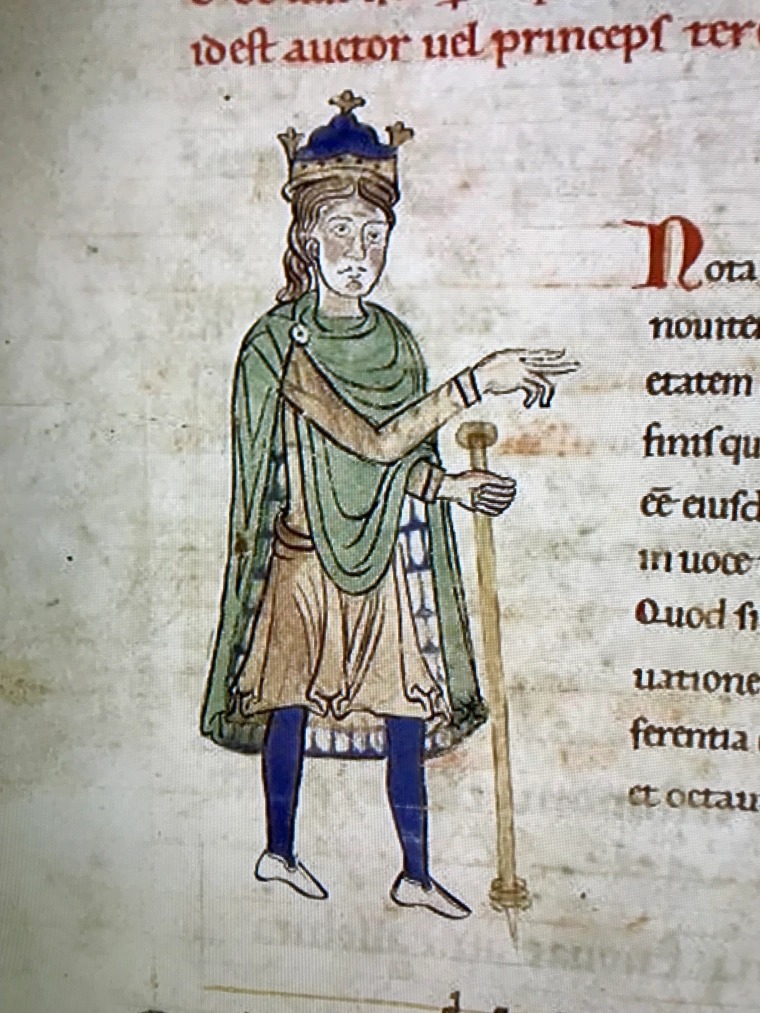 idest auctor uel princeps ter
Nota
nouite
etatem
finisqu
eē eiusd
in uoce
Quod si
uatione
ferentia
et octau